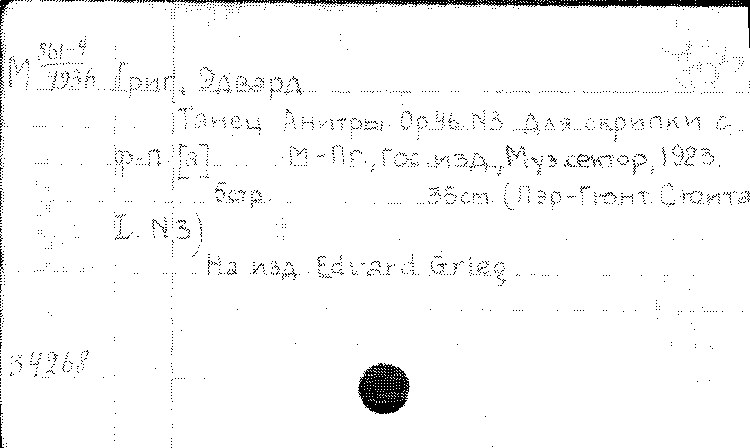 М 361-4
Григ, Эдвард
Танец Анитры Ор46 N3 Для скрипки с
ф-п. [а] М-Пг, Гос.изд., Музсектор, 1923.
6стр. 35cm (Пэр-Гюнт. Сюита
I. N3)
На изд. Edvard Grieg
34268